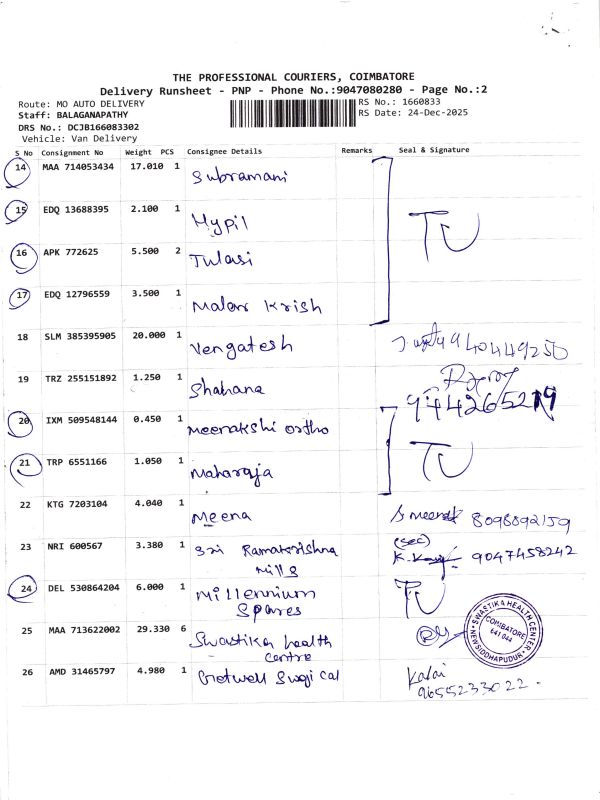 THE PROFESSIONAL COURIERS, COIMBATORE
Delivery Runsheet - PNP - Phone No.:9047080280 - Page No.:2
Route: MO AUTO DELIVERY
RS No.: 1660833
Staff: BALAGANAPATHY
RS Date: 24-Dec-2025
DRS No.: DCJB166083302
Vehicle: Van Delivery
S No Consignment No Weight PCS Consignee Details Remarks Seal & Signature
14 MAA 714053434 17.010 1 Subramani
15 EDQ 13688395 2.100 1 Hypil
TU
16 APK 772625 5.500 2 Tulasi
17 EDQ 12796559 3.500 1 Malar Krish
18 SLM 385395905 20.000 1 Vengatesh 9404449250
19 TRZ 255151892 1.250 1 Shahana
20 IXM 509548144 0.450 1 Meenakshi ortho
21 TRP 6551166 1.050 1 Maharaja TU
22 KTG 7203104 4.040 1 Meena S meena 8098892159
23 NRI 600567 3.380 1 Sri Ramakrishna (sec) 9047458242
Mills
24 DEL 530864204 6.000 1 Millennium TU
Spares
25 MAA 713622002 29.330 6 Swastika health
centre
SWASTIKA HEALTH CENTER
COIMBATORE
641 044
NEW SIDDHAPUDUR
26 AMD 31465797 4.980 1 Getwell Surgical Kalai
9655233022.